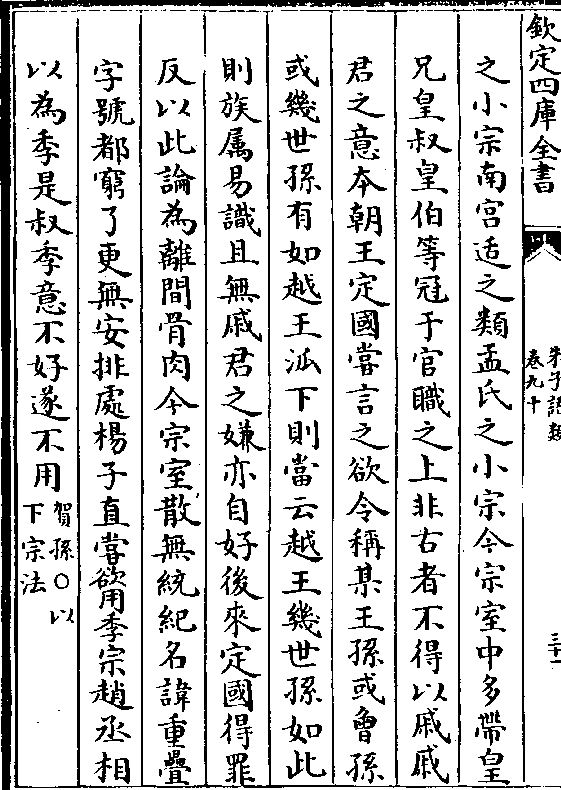 欽定四庫全書
朱子語類
卷九十
三十一
之小宗南宫适之類孟氏之小宗今宗室中多帶皇
兄皇叔皇伯等冠于官職之上非古者不得以戚戚
君之意本朝王定國嘗言之欲令稱某王孫或曾孫
或幾世孫有如越王泒下則當云越王幾世孫如此
則族属易識且無戚君之嫌亦自好後來定國得罪
反以此論為離間骨肉今宗室散無統紀名諱重疊
字號都窮了更無安排處楊子直嘗欲用季宗趙丞相
以為季是叔季意不好遂不用賀孫○以
下宗法